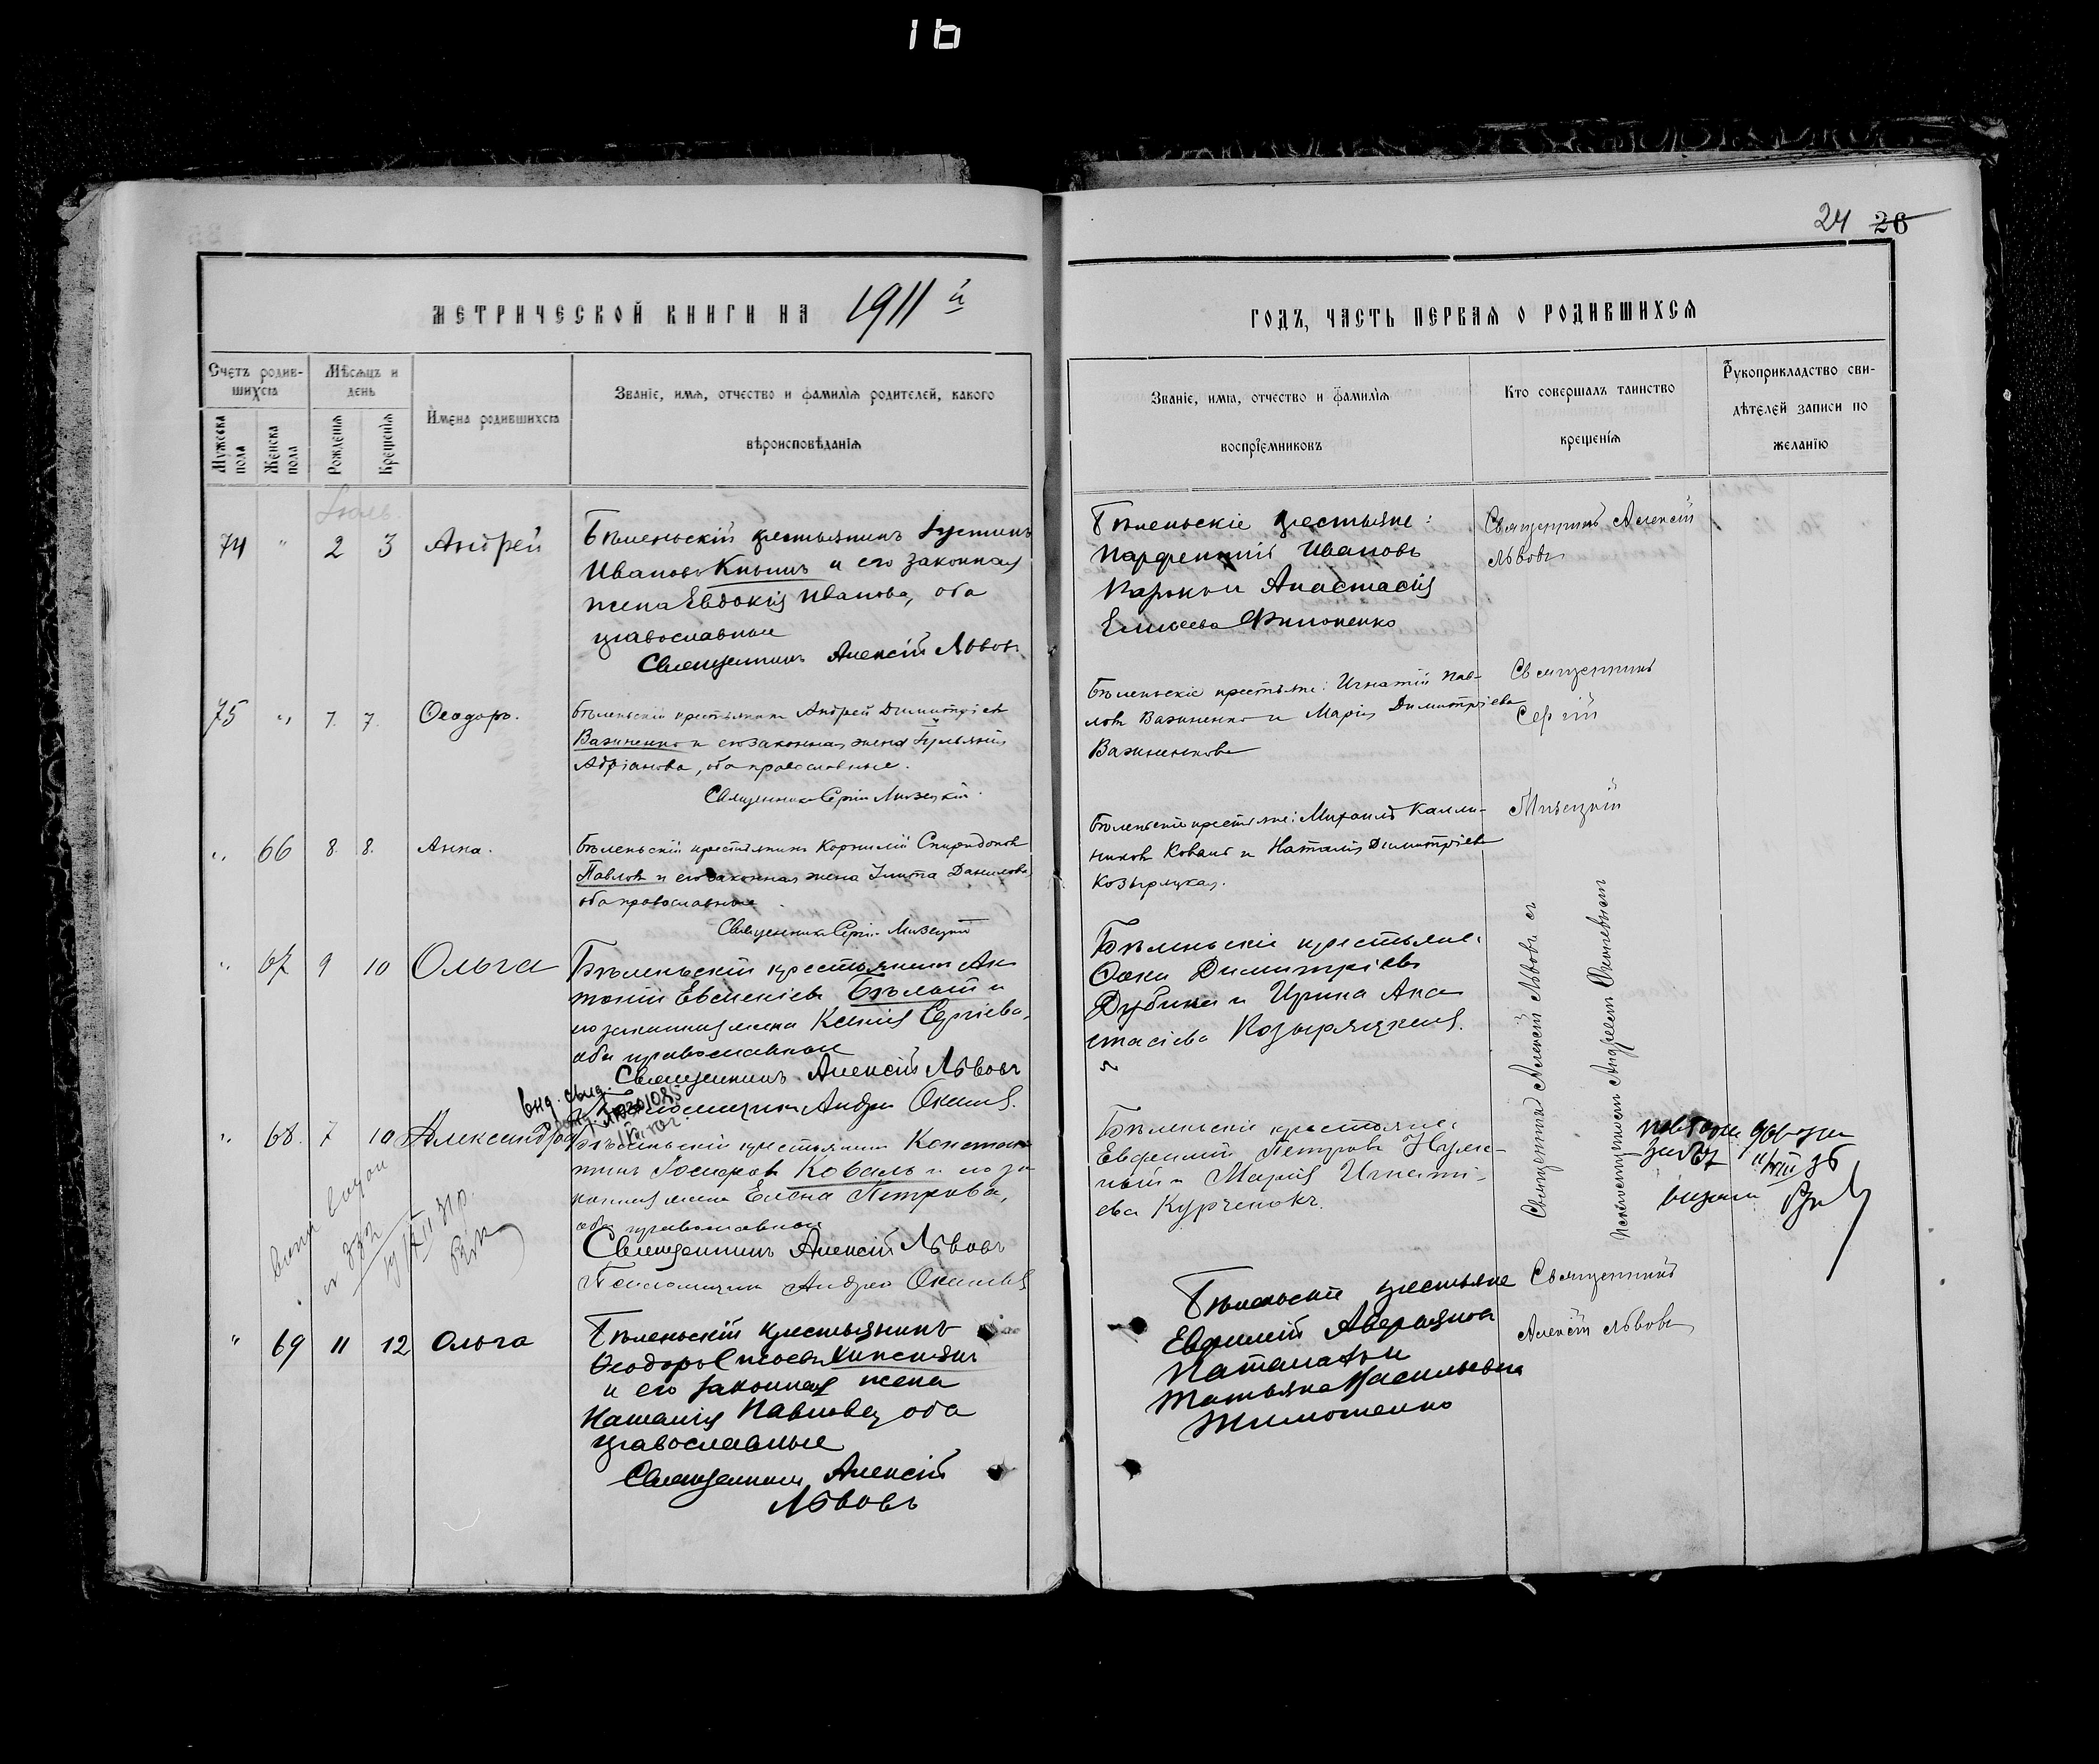 16
24 26
МЕТРИЧЕСКОЙ КНИГИ НА 1911 й
Счетъ родив-
шихся
Мѣсяцъ и
день
Мужеска
пола
Женска
пола
Рожденія
Крещенія
Имена родившихся
Званіе, имя, отчество и фамилія родителей, какого
вѣроисповѣданія
Іюль.
74 " 2 3 Андрей
Бѣленьскій крестьянинъ Іустинъ
Ивановъ Книшъ и его законная
жена Евдокія Иванова, оба
православные
Священникъ Алексій Львовъ
75 " 7. 7. Ѳеодоръ.
Бѣленьскій крестьянинъ Андрей Димитріевъ
Важиненко и его законная жена
Адріанова, оба православные.
Священникъ Сергій Мизецкій.
" 66 8. 8. Анна.
Бѣленьскій крестьянинъ Корнилій Спиридоновъ
Павловъ и его законная жена Улита Данилова
оба православные
Священникъ Сергій Мизецкій
" 67 9 10 Ольга
Бѣленьскій крестьянинъ Ан-
тоній Евсиевіевъ Бѣлый и
его законная жена Ксенія Сергіева,
оба православные
Священникъ Алексій Львовъ
Псаломщикъ Андрей
" 68. 7 10 Александра
Бѣленьскій крестьянинъ Констан-
тинъ Коваль и его за-
конная жена Елена Петрова,
оба православные
Священникъ Алексій Львовъ
Псаломщикъ Андрей
" 69 11 12 Ольга
Бѣленьскій крестьянинъ
Ѳеодоръ
и его законная жена
Наталія Павлова, оба
православные
Священникъ Алексій
Львовъ
ГОДЪ, ЧАСТЬ ПЕРВАЯ О РОДИВШИХСЯ
Званіе, имя, отчество и фамилія
воспріемниковъ
Кто совершалъ таинство
крещенія
Рукоприкладство сви-
дѣтелей записи по
желанію
Бѣленьскіе крестьяне:
Парфентій Ивановъ
Анастасія
Елисеева Филоненко
Священникъ Алексій
Львовъ
Бѣленьскіе крестьяне: Игнатій Пав-
ловъ Важиненко и Марія Димитріева
Важиненкова
Священникъ
Сергій
Мизецкій
Бѣленьскіе крестьяне: Михаилъ Калли-
никовъ Коваль и Наталія Димитріева
Козыряцкая.
Бѣленьскіе крестьяне:
Ѳока Димитріевъ
Дубина и Ирина Ана-
стасіева Козыряцкая.
Священникъ Алексій Львовъ съ
псаломщикомъ Андреемъ
Бѣленьскіе крестьяне:
Евфимій Петровъ
и Марія Игнаті-
ева Курченокъ.
Бѣленьскіе крестьяне
Евфимій Аверьяновъ
Татьяна Васильевна
Тимошенко
Священникъ
Алексій Львовъ